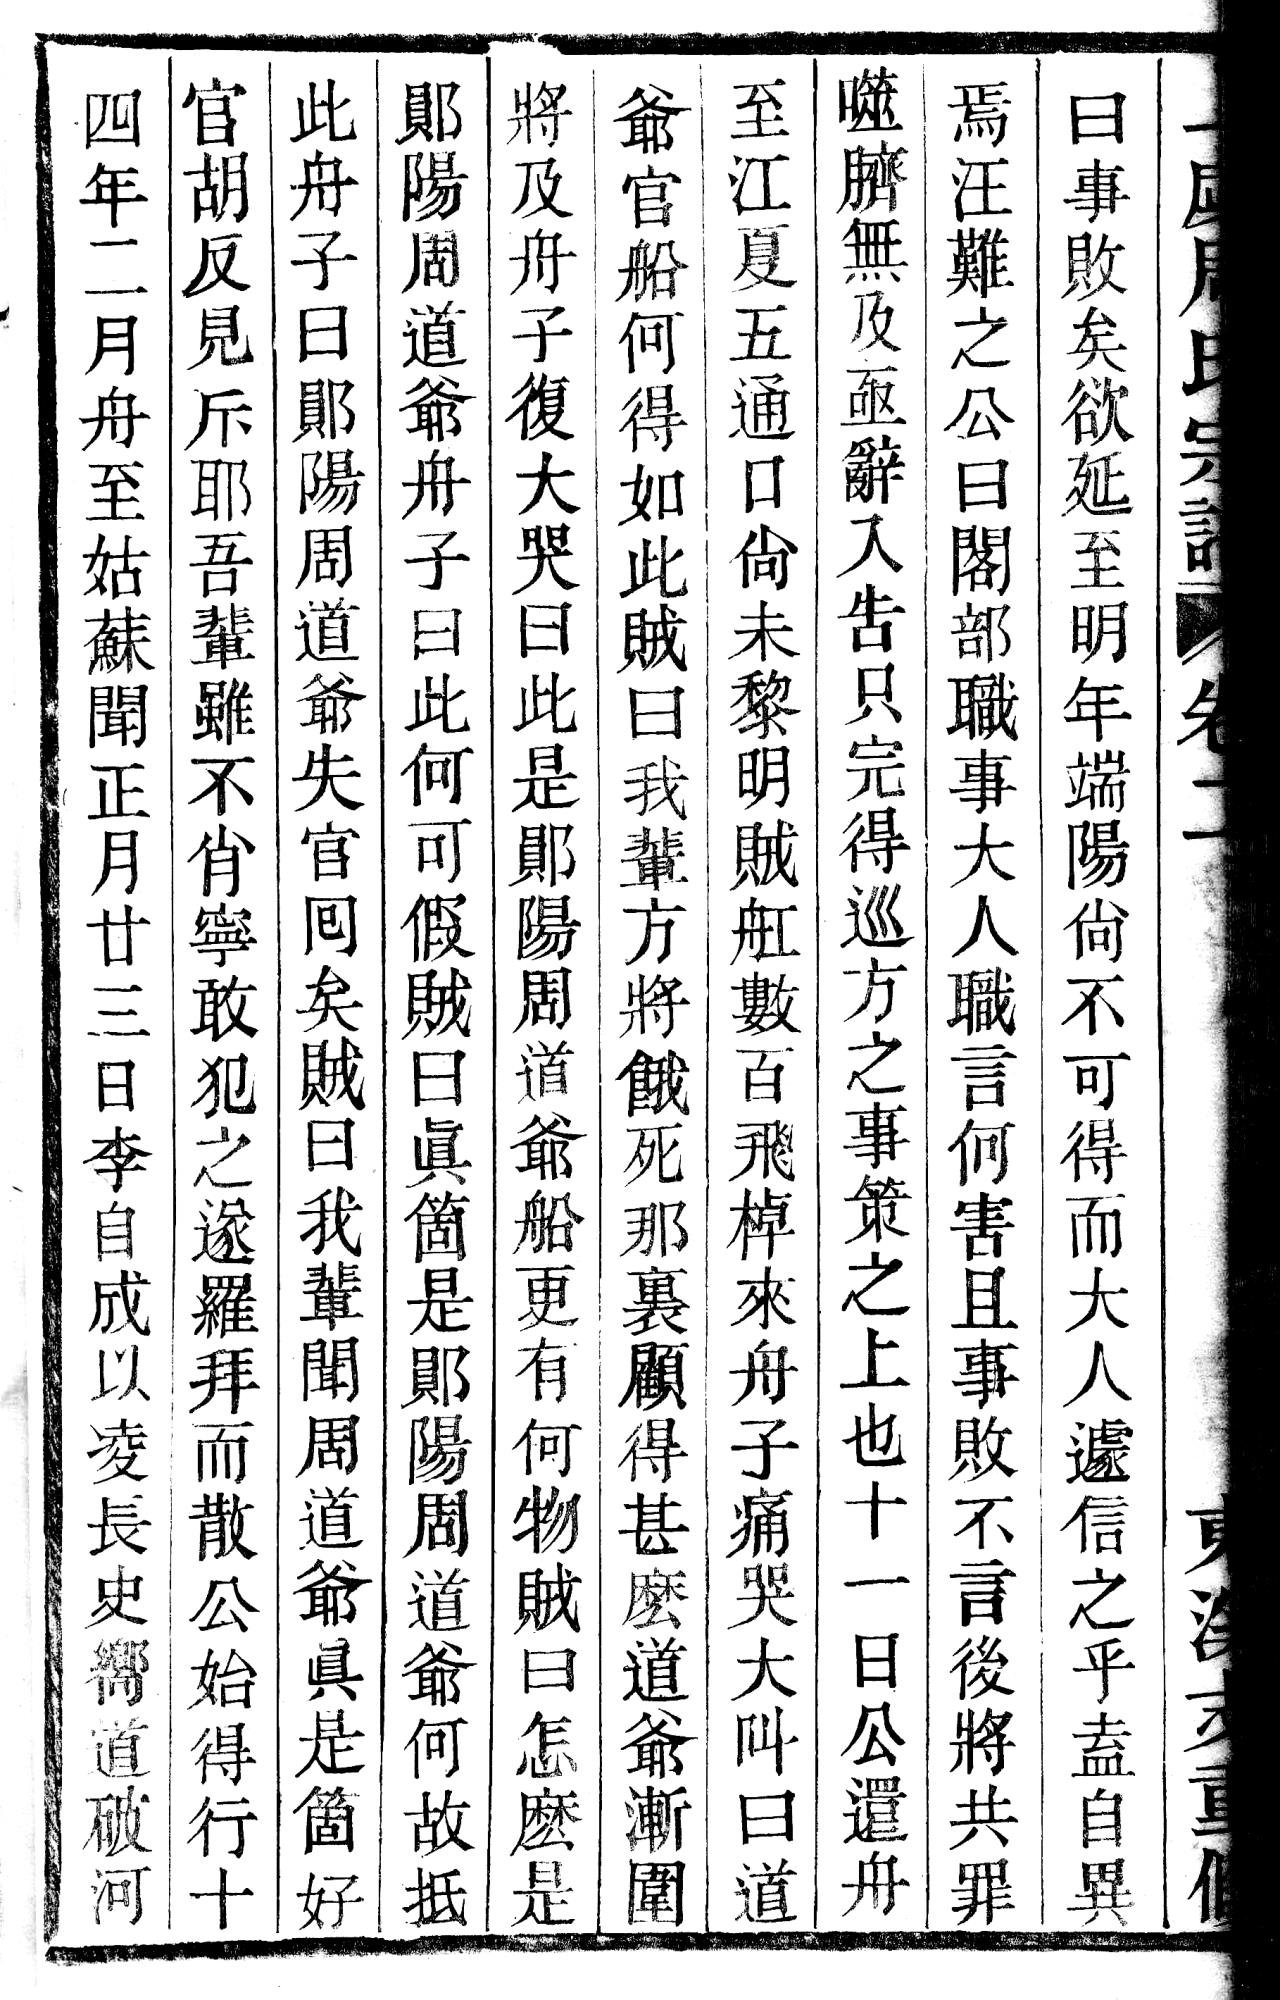 周氏宗譜 卷二 重修
曰事敗矣欲延至明年端陽尙不可得而大人遽信之乎盍自異
焉汪難之公曰閣部職事大人職言何害且事敗不言後將共罪
噬臍無及亟辭入告只完得巡方之事策之上也十一日公還舟
至江夏五通口尙未黎明賊舡數百飛棹來舟子痛哭大叫曰道
爺官船何得如此賊曰我輩方將餓死那裏顧得甚麽道爺漸圍
將及舟子復大哭曰此是鄖陽周道爺船更有何物賊曰怎麽是
鄖陽周道爺舟子曰此何可假賊曰眞箇是鄖陽周道爺何故抵
此舟子曰鄖陽周道爺失官囘矣賊曰我輩聞周道爺眞是箇好
官胡反見斥耶吾輩雖不肖寧敢犯之遂羅拜而散公始得行十
四年二月舟至姑蘇聞正月廿三日李自成以凌長史嚮道破河